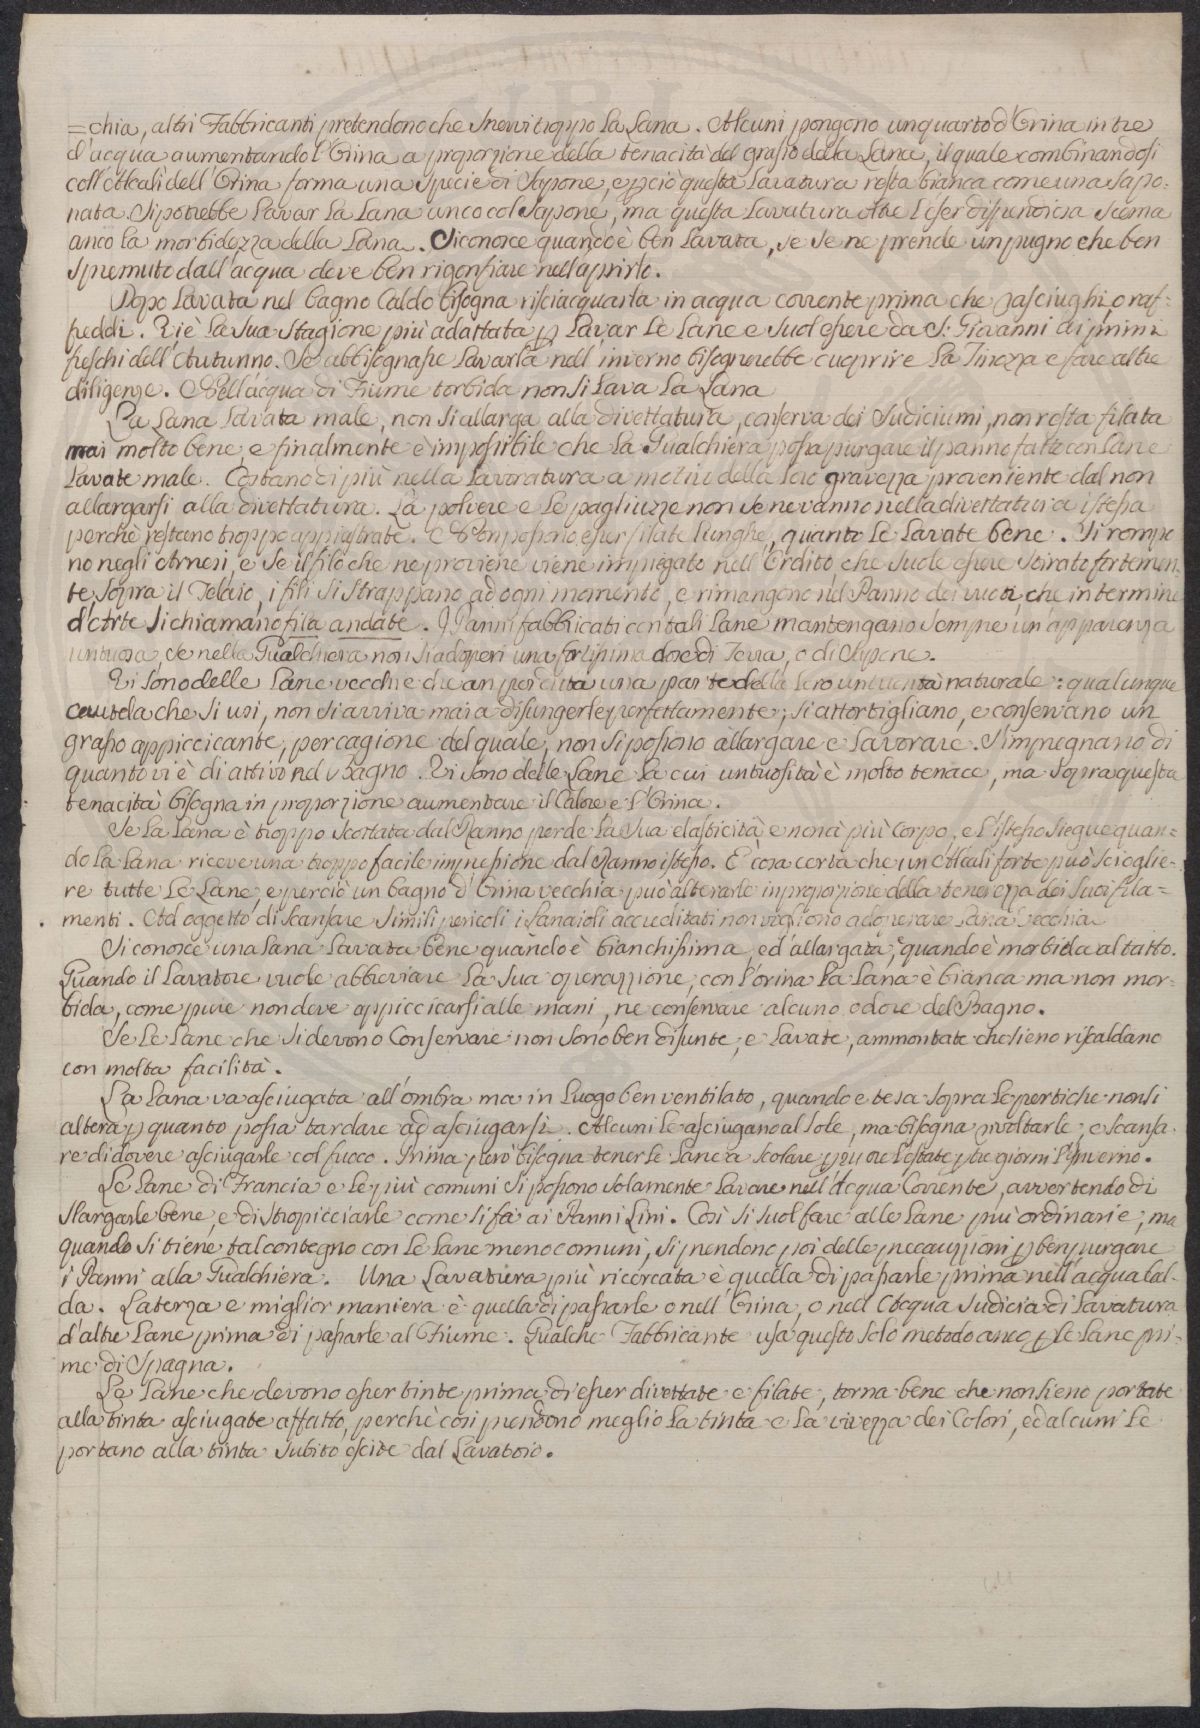 =chia, altri Fabbricanti pretendono che Snervi troppo la Lana. Alcuni pongono un quarto d'Orina in tre
d'acqua aumentando l'Orina a proporzione della tenacità del grasso della Lana, il quale combinandosi
coll'Alcali dell'Orina forma una Specie di Sapone, e pciò questa Lavatura resta bianca come una Sapo-
nata. Si potrebbe Lavar la Lana anco col Sapone, ma questa Lavatura oltre l'esser dispendiosa Scema
anco la morbidezza della Lana. Si conosce quando è ben Lavata, se se ne prende un pugno che ben
Spremuto dall'acqua deve ben rigonfiare nell'aprirlo.
Dopo Lavata nel bagno Caldo bisogna risciacquarla in acqua corrente prima che rasciughi, o raf-
freddi. Vi è la sua Stagione più adattata p Lavar le Lane e suol essere da S. Giovanni ai primi
freschi dell'Autunno. Se abbisognasse Lavarla nell'inverno bisognerebbe cuoprire la Tinozza e fare altre
diligenze. Nell'acqua di Fiume torbida non si Lava la Lana
La Lana Lavata male, non si allarga alla divettatura, conserva dei Sudiciumi, non resta filata
mai molto bene, e finalmente è impossibile che la Gualchiera possa purgare il panno fatto con Lane
Lavate male. Costano di più nella Lavoratura a motivo della loro gravezza proveniente dal non
allargarsi alla divettatura. La polvere e le pagliuzze non se ne vanno nella divettatura istessa
perchè restano troppo appiastrate. Non possono esser filate lunghe, quanto le Lavate bene. Si rompo
no negli Arnesi, e se il filo che ne proviene viene impiegato nell'Ordito, che suole essere Stirato fortemen-
te sopra il Telaio, i fili si strappano ad ogni momento, e rimangono nel Panno dei vuoti, che in termine
d'Arte si chiamano fila andate. I Panni fabbricati con tali Lane mantengano Sempre un'apparenza
untuosa, se nella Gualchiera non si adoperi una fortissima dose di Terra, e di Sapone.
Vi Sono delle Lane vecchie che an perduta una parte della loro untuosità naturale: qualunque
cautela che si usi, non si arriva mai a disungerle perfettamente; si attortigliano, e conservano un
grasso appiccicante, per cagione del quale, non si possono allargare e Lavorare. S'impregnano di
quanto vi è di attivo nel Bagno. Vi sono delle Lane la cui untuosità è molto tenace, ma sopra questa
tenacità bisogna in proporzione aumentare il Calore e l'Orina.
Se la Lana è troppo Scottata dal Ranno perde la sua elasticità e non à più Corpo, e l'istesso Siegue quan=
do la Lana riceve una troppo facile impressione dal Ranno istesso. È cosa certa che un Alcali forte può Scioglie-
re tutte le Lane, e perciò un bagno d'Orina vecchia può alterarle in proporzione della tenerezza dei Suoi fila=
menti. Ad oggetto di Scansare Simili pericoli i Lanaioli accreditati non vogliono adoperare Lana Vecchia
Si conosce una Lana Lavata bene quando è bianchissima, ed allargata, quando è morbida al tatto.
Quando il Lavatore vuole abbreviare la sua operazzione, con l'orina la Lana è bianca ma non mor=
bida, come pure non deve appiccicarsi alle mani, ne conservare alcuno odore del Bagno.
Se le Lane che si devono Conservare non sono ben disunte, e Lavate, ammontate che sieno riscaldano
con molta facilità.
La Lana va asciugata all'ombra ma in luogo ben ventilato, quando è tesa sopra le pertiche non si
altera p quanto possa tardare ad asciugarsi. Alcuni le asciugano al Sole, ma bisogna rivoltarle, e Scansa-
re di dovere asciugarle col fuoco. Prima però bisogna tenerle Lane a Scolare p ore l'estate p tre giorni l'Inverno.
Le Lane di Francia e le più comuni si possono solamente Lavare nell'Acqua Corrente, avvertendo di
Slargarle bene, e di Stropicciarle come si fà ai Panni Lini. Così si suol fare alle Lane più ordinarie, ma
quando si tiene tal contegno con le Lane meno comuni, si prendono poi delle precauzzioni p ben purgare
i Panni alla Gualchiera. Una Lavatura più ricercata è quella di passarle prima nell'acqua Cal-
da. La terza e miglior maniera è quella di passarle o nell'Orina, o nell'Acqua Sudicia di Lavatura
d'altre Lane prima di passarle al Fiume. Qualche Fabbricante usa questo solo metodo anco p le Lane pri-
me di Spagna.
Le Lane che devono esser tinte prima di esser divettate e filate, torna bene che non sieno portate
alla tinta asciugate affatto, perchè così prendono meglio la tinta e la vivezza dei Colori, ed alcuni le
portano alla tinta subito escite dal Lavatoio.